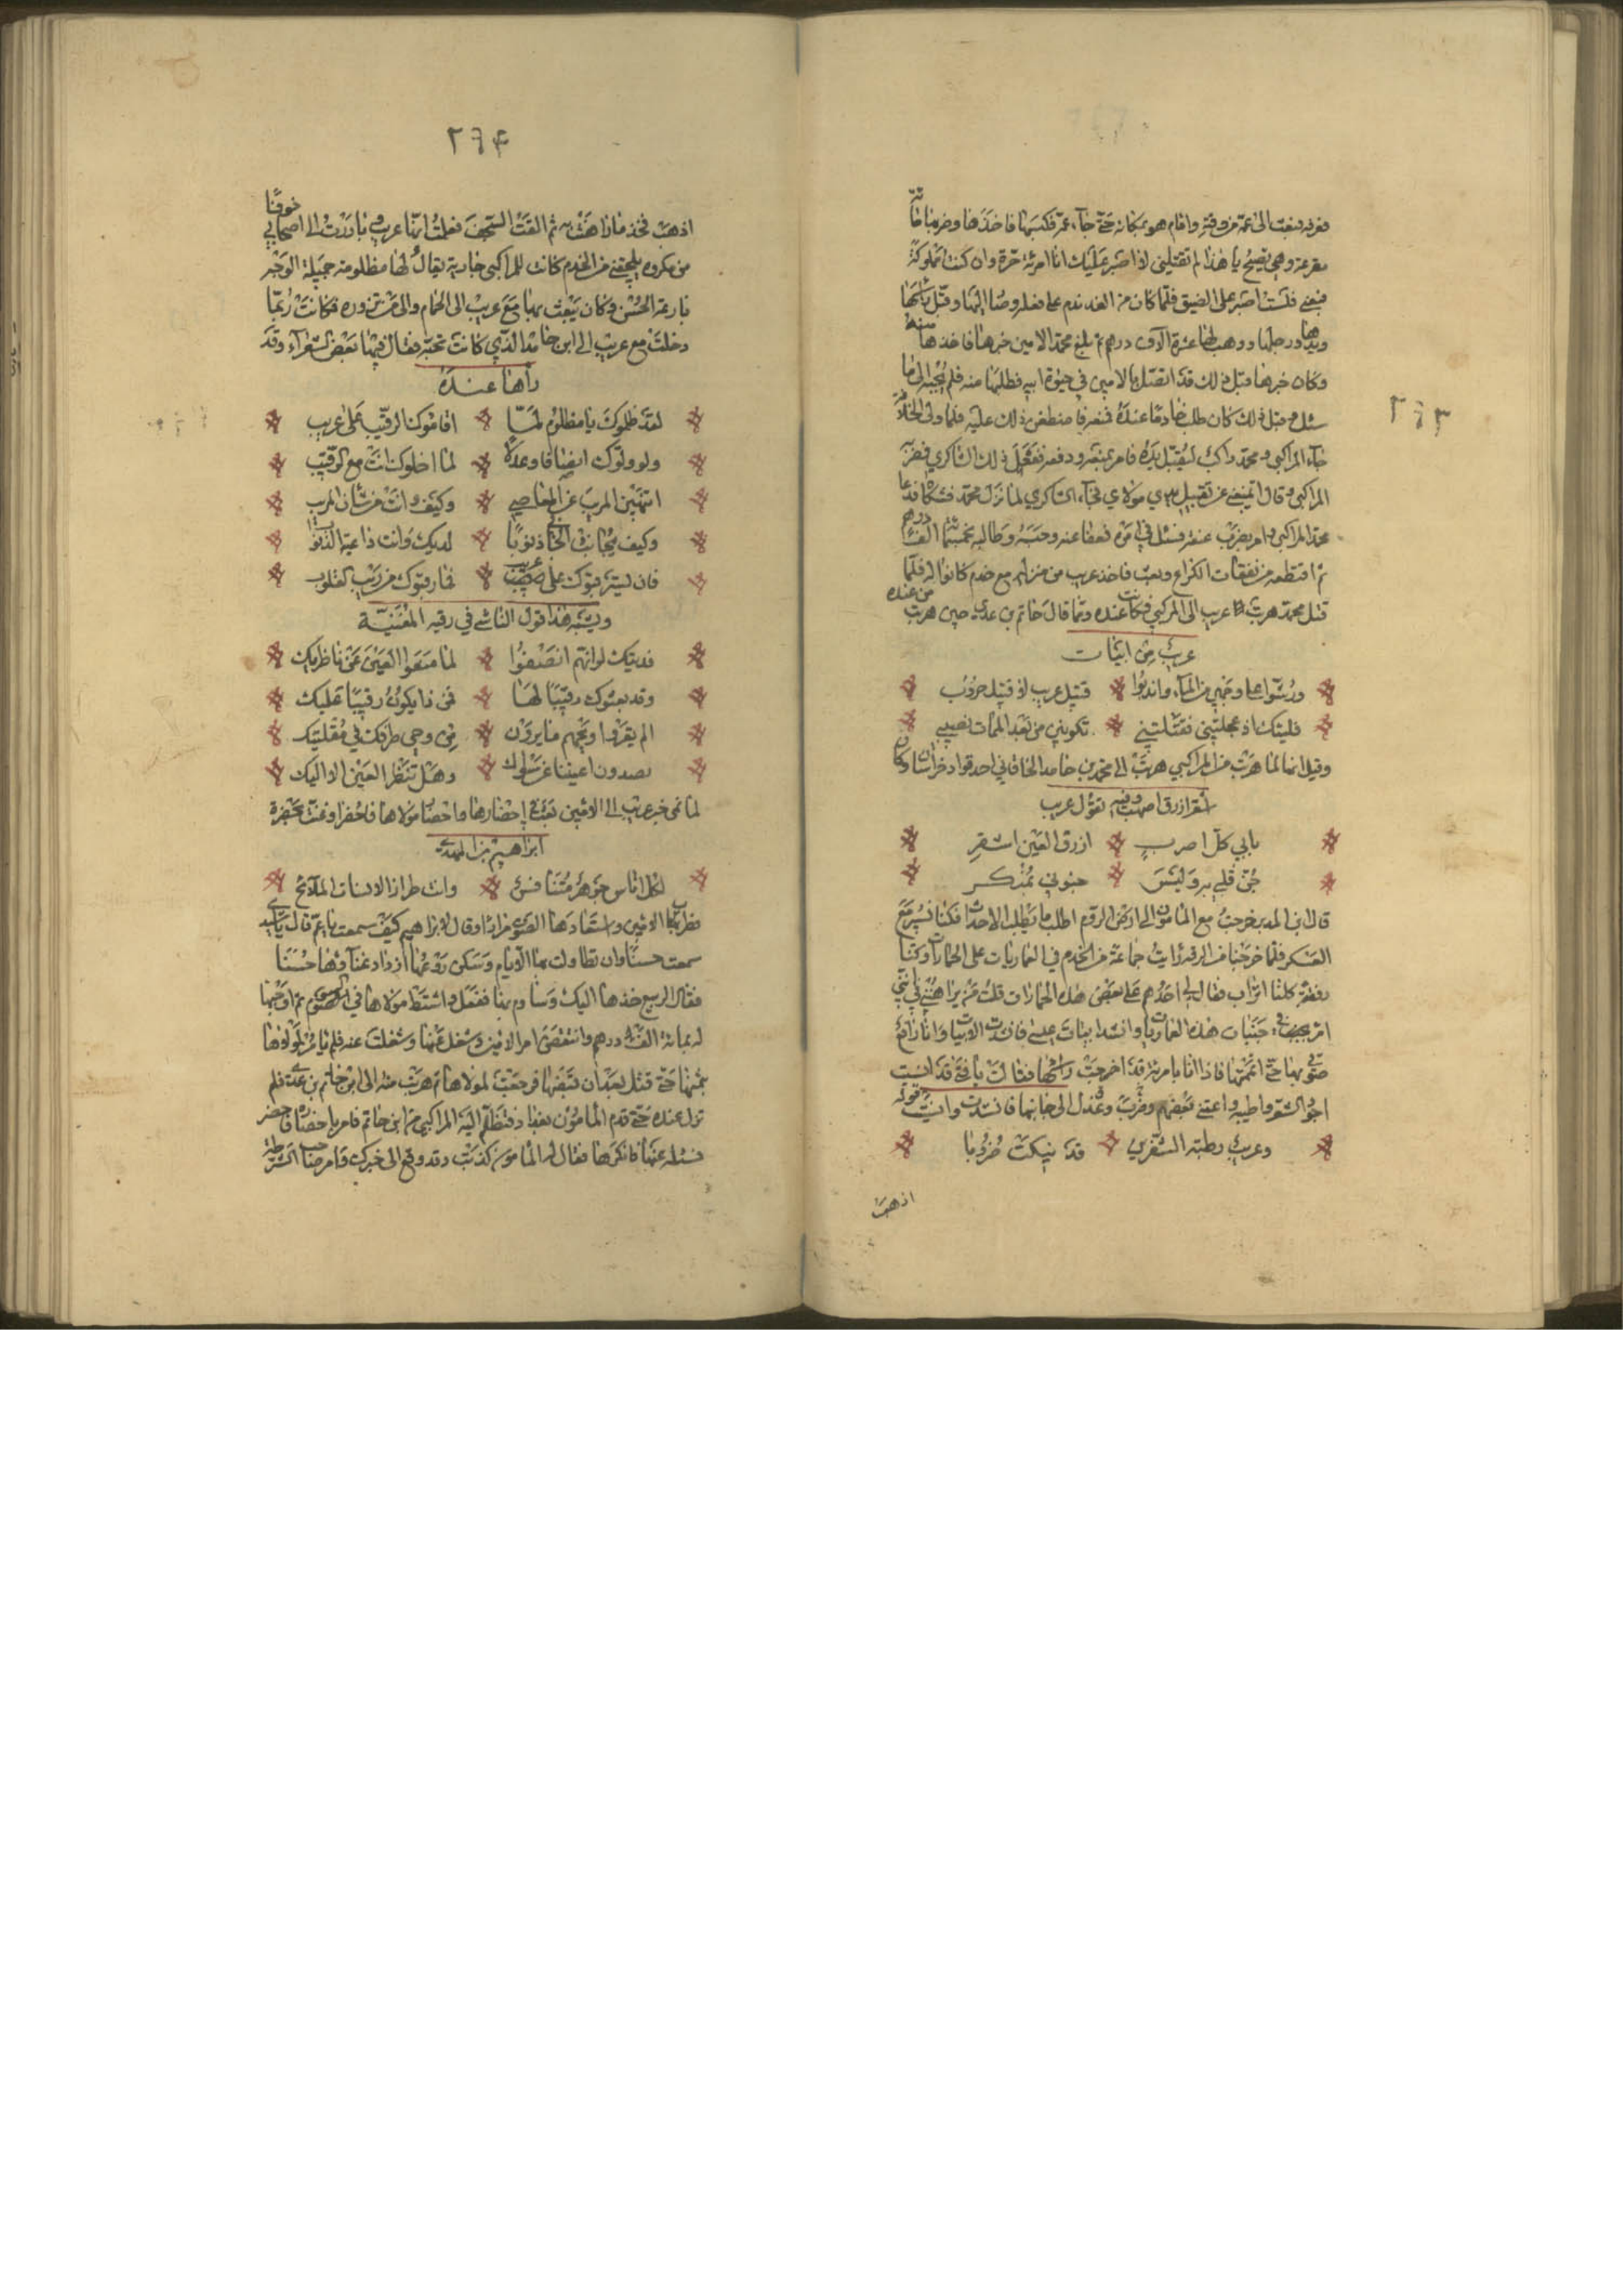 فعرفه فبعث الى عمه من وقته واقام هو بمكانه حتى جآء عمه فكبسها فاخذها وضربها مائة
مقرعة وهي تصيح يا هذا لم تقتلني لا اصبر عليك انا امرئة حرة وان كنت مملوكة
فبعني فلست اصبر على الضيق فلما كان من الغد ندم على فعله وصار اليها وقبل راسها
ويدها ورجلها ووهب لها عشرة آلاف درهم ثم بلغ محمد الامين خبرها فاخذها منه
وكان خبرها قبل ذلك قد اتصل بالامين في حيوة ابيه فطلبها منه فلم يجبه الى ما
سئل وقبل ذلك كان طلب خادما عنده فاضطغن ذلك عليه فلما ولى الخلافة
جآء المراكبي ومحمد راكب ليقبل يده فامر بمنعه ودفعه ففعل ذلك الشاكري فضربه
المراكبي وقال اتمنعني عن تقبيل يدي مولاي فجآء الشاكري لما نزل محمد فشكاه فدعا
محمد المراكبي وامر بضرب عنقه فسئل في امره فعفا عنه وحبسه وطالبه بخمسمائة الف درهم
مما اقتطعه من نفقات الكراع وبعث فاخذ عريب من منزله مع خدم كانوا له فلما
قتل محمد هربت عريب الى المراكبي فكانت عنده ومما قال حاتم بن عدي حين هربت من عنده
عريب من ابيات
ورشوا على وجهي من المآء واندبوا قتيل عريب لا قتيل حروب
فليتك اذ عجلتيني فقتلتيني تكونين من بعد الممات نصيبي
وقيل انما لما هربت من المراكبي هربت الى محمد بن حامد الخاقاني احد قواد خراسان وكان
اشقر ازرق اصهب وفيه تقول عريب
بابي كل اصهب ازرق العين اشقر
جن قلبي به وليس جنوني بمنكر
قال ابن المدبر خرجت مع المامون الى ارض الروم اطلب ما يطلب الاحداث فكنا نسير مع
العسكر فلما خرجنا من الرقة رايت جماعة من الخدم في العماريات على الجمازات وكنا
رفقة كلنا اتراب فقال لي احدهم على بعض هذه الجمازات قلت من يراهنني انني
امر بجنبات هذه العماريات وانشد ابيات عيسى فانشدت الابيات وانا رافع
صوتي بها حتى اتممتها فاذا انا بامرئة قد اخرجت راسها فقالت يا فتى قد انسيت
اجود الشعر واطيبه وانسيت قوله
وعريب رطبة الشفرين قد نيكت ضروبا
اذهب
٢٦٣
٢٦٤
اذهب فخذ ما راهنت به ثم القت السجف فعلمت انها عريب وبادرت الى اصحابي خوفا
من مكروه يلحقني من الخدم كانت للمراكبي جارية يقال لها مظلومة جميلة الوجه
بارعة الحسن وكان يبعث بها مع عريب الى الحمام والى من تزوره فكانت ربما
دخلت مع عريب الى ابن حامد الذي كانت تحبه فقال فيها بعض الشعرآء وقد
رآها عنده
لقد ظلموك يا مظلوم لما اقاموك الرقيب على عريب
ولو ولوك انصافا وعدلا لما اخلوك انت مع الرقيب
اتنهين المريب عن المعاصي وكيف وانت من شان المريب
وكيف يجانب الجاني ذنوبا لديك وانت داعية الذنوب
فان يسترقبوك على عريب فما رقبوك من ريب القلوب
ويشبه هذا قول الناشي في رقيبة المغنية
فديتك لو انهم انصفوا لما منعوا العين عن ناظريك
وقد بعثوك رقيبا لها فمن ذا يكون رقيبا عليك
الم يقرؤا ويحهم ما يرون من وحي طرفك في مقلتيك
يصدون اعيننا عن سواك وهل تنظر العين الا اليك
لما نمى خبر عريب الى الامين بعث في احضارها واحضار مولاها فاحضرا وغنت بحضرة
ابراهيم بن المهدي
لكل اناس جوهر متنافس وانت طراز الانسات الملائح
فطرب لها الامين واستعادها الصوت مرارا وقال لابراهيم كيف سمعت يا عم قال يا سيدي
سمعت حسنا وان تطاولت بها الايام وسكن روعها ازداد غنآؤها حسنا
فقال للربيع خذها اليك وساوم بها ففعل واشتط مولاها في السوم ثم اوجبها
له بمائة الف درهم وانتقض امر الامين وشغل عنها وشغلت عنه فلم يامر لمولاها
بثمنها حتى قتل بعد ان افتضها فرجعت لمولاها ثم هربت منه الى ابن حاتم بن عدي فلم
تزل عنده حتى قدم المامون بغداد فتظلم اليه المراكبي من ابن حاتم فامر باحضاره فاحضر
فسئله عنها فانكرها فقال له المامون كذبت وقد وقع الى خبرك وامر صاحب الشرطة